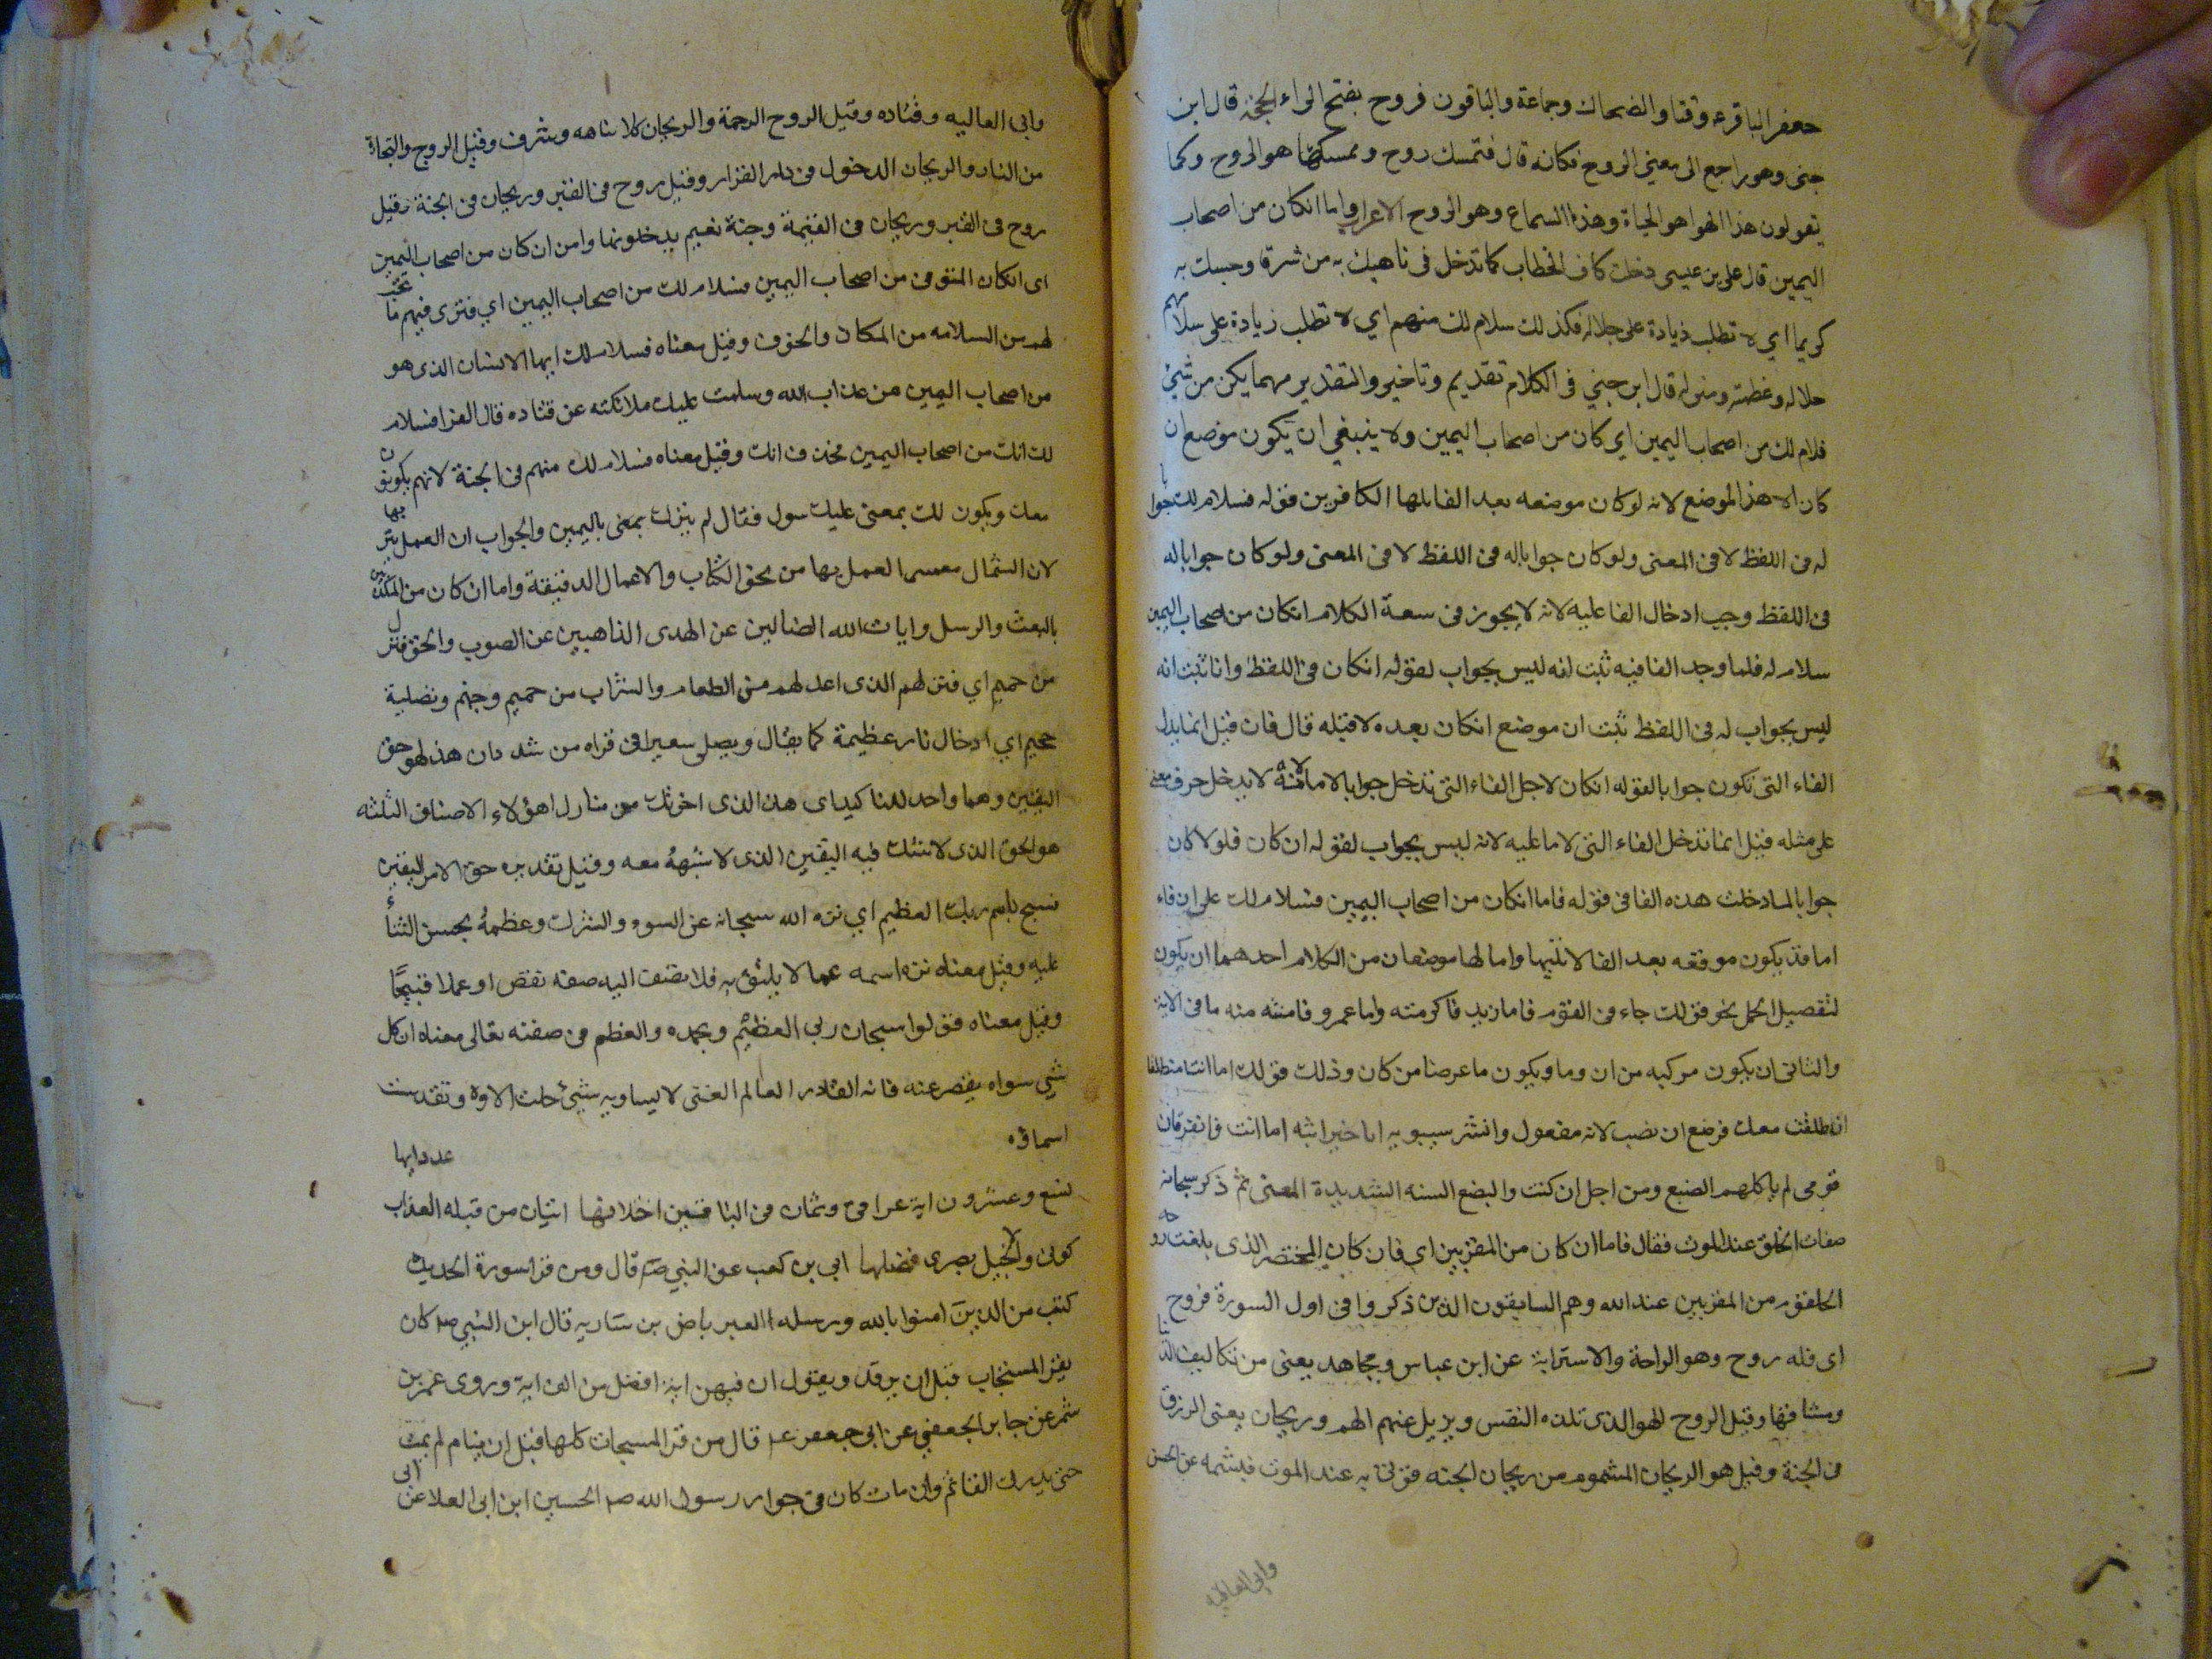 جعفر الباقر ع وقتا والضحاك وجماعة والباقون فروح بفتح الراء الحجة قال ابن
جنى وهو راجع الى معنى الروح فكانه قال فتمسك روح وممسكها هو الروح وكما
تقولون هذا الهوا هو الحياة وهذا السماع وهو الروح الاعراب واما انكان من اصحاب
اليمين قال على بن عيسى دخلت كاف الخطاب كما تدخل فى ناهيك به من شرفا وحسبك به
كريما اي لا تطلب زيادة على جلاله فكذلك سلام لك منهم اي لا تطلب زيادة على سلامهم
جلاله وعظمته ومنزله قال ابن جني فى الكلام تقديم وتاخير والتقدير مهما يكن من شئ
فلام لك من اصحاب اليمين اي كان من اصحاب اليمين ولا ينبغي ان يكون موضع ان
كان الا هذا الموضع لانه لو كان موضعه بعد الفا يلها الكافرين فقوله فسلام لك جوابا
له فى اللفظ لا فى المعنى ولو كان جوابا له فى اللفظ لا فى المعنى ولو كان جوابا له
فى اللفظ وجب ادخال الفا عليه لانه لا يجوز فى سعة الكلام انكان من اصحاب اليمين
سلام له فلما وجد الفا فيه ثبت انه ليس بجواب لقوله انكان فى اللفظ وانا ثبت انه
ليس بجواب له فى اللفظ ثبت ان موضع انكان بعده لا قبله قال فان قيل انما يدل
الفاء التى تكون جوابا لقوله انكان لاجل الفاء التى تدخل جوابا لاما لانه لا يدخل حرف معنى
على مثله قيل انما تدخل الفاء التى لاما عليه لانه ليس بجواب لقوله ان كان فلو لا كان
جوابا لما دخلت هذه الفا فى قوله فاما انكان من اصحاب اليمين فسلام لك على ان فاء
اما قد يكون موقعه بعد الفا لا تليها واما لها موضعان من الكلام احدهما ان يكون
لتفصيل الجمل نحو قولك جاء فى القوم فاما زيد فاكرمته واما عمرو فامنته منه ما فى الاية
والثانى ان يكون مركبه من ان وما ويكون ما عرضا من كان وذلك قولك اما انت منطلقا
انطلقت معك فرضع ان نصب لانه مفعول وانشر سيبويه ابا خيراشه اما انت ذا نفر فان
قومى لم ياكلهم الضبع ومن اجل ان كنت والبضع السنه الشديدة المعنى ثم ذكر سبحانه
صفات الخلق عند الموت فقال فاما ان كان من المقربين اى فان كان المختصر الذى بلغت روحه
الحلقوم من المقربين عند الله وهم السابقون الذين ذكروا فى اول السورة فروح
اى فله روح وهو الراحة والاستراية عن ابن عباس ومجاهد يعنى من تكاليف الدنيا
ومشاقها وقيل الروح لهو الذى تلذه النفس ويزيل عنهم الهم وريحان يعنى الرزق
فى الجنة وقيل هو الريحان المشموم من ريحان الجنه فؤتى به عند الموت فيشمه عن الحسن
وابى العاليه
وابى العاليه وقتاده وقيل الروح الرحمة والريحان كلا نباهه وشرف وقيل الروح والنجاة
من النار والريحان الدخول فى دار القرار وقيل روح فى القبر وريحان فى الجنة وقيل
روح فى القبر وريحان فى القيمة وجنة نعيم يدخلونها وامن ان كان من اصحاب اليمين
اى انكان المتوفى من اصحاب اليمين فسلام لك من اصحاب اليمين اي فترى فيهم ما تحب
لهم من السلامه من المكاره والخوف وقيل معناه فسلام لك ايها الانسان الذى هو
من اصحاب اليمين من عذاب الله وسلمت عليك ملائكته عن قتاده قال الفرا فسلام
لك انك من اصحاب اليمين فحذف انك وقيل معناه فسلام لك منهم فى الجنة لانهم يكونون
معك ويكون لك بمعنى عليك سول فقال لم يترك بمعنى باليمين والجواب ان العمل يتر بها
لان الشمال معسر العمل بها من نحو الكتاب والاعمال الدقيقة واما ان كان من المكذبين
بالبعث والرسل وايات الله الضالين عن الهدى الذاهبين عن الصوب والحق فنزل
من حميم اي فنزلهم الذى اعد لهم من الطعام والشراب من حميم وجهنم وتصلية
جحيم اي ادخال نار عظيمة كما يقال ويصلى سعيرا فى قراه من شد دان هذا لهو حق
اليقين وهما واحد للتاكيد اى هذا الذى اخرتك من منازل هؤلاء الاصناف الثلثه
هو الحق الذى لا شك فيه اليقين الذى لا شبهة معه وقيل تقديره حق الامر اليقين
فسبح باسم ربك العظيم اي نزه الله سبحانه عن السوء والشرك وعظمه بحسن الثناء
عليه وقيل معناه نزه اسمه عما لا يليق به فلا يضف اليه صفه نقص او عملا قبيحًا
وقيل معناه قولوا سبحان ربى العظيم وبحمده والعظم فى صفته تعالى معناه ان كل
شي سواه يقصر عنه فانه القادر العالم الغنى لا يساويه شئ جلت الاوه وتقدست
اسماؤه
عدد ايها
تسع وعشرون اية عراقى وثمان فى الباقين اختلافها ايتان من قبله العذاب
كوفى والانجيل بصرى فضلها ابى بن كعب عن النبي ص قال ومن قرا سورة الحديد
كتب من الذين امنوا بالله ورسله العرباض بن سارية قال ابن النبي ص كان
يقر المسبحات قبل ان يرقد ويقول ان فيهن اية افضل من الف اية وروى عمر بن
شمر عن جابر الجعفي عن ابى جعفر ع قال من قرا المسبحات كلها قبل ان ينام لم يمت
حتى يدرك القائم وان مات كان فى جوار رسول الله ص الحسين ابن ابى العلا عن ابى